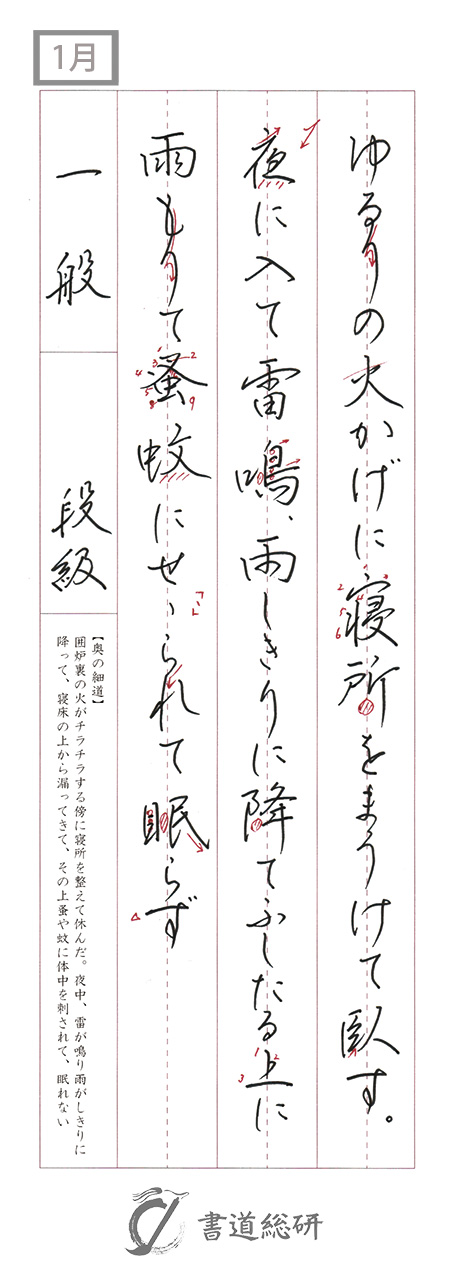 1月
ゆるりの火かげに寝所をまうけて臥す。
夜に入て雷鳴、雨しきりに降てふしたる上に
雨もりて蚤蚊にせゝられて眠らず
一般
段級
【奥の細道】
囲炉裏の火がチラチラする傍に寝所を整えて休んだ。夜中、雷が鳴り雨がしきりに
降って、寝床の上から漏ってきて、その上蚤や蚊に体中を刺されて、眠れない
書道総研